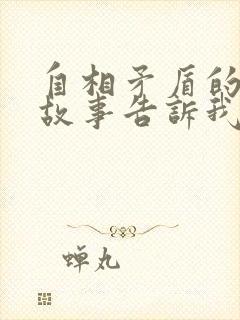 自相矛盾的
故事告訴我
蝉丸